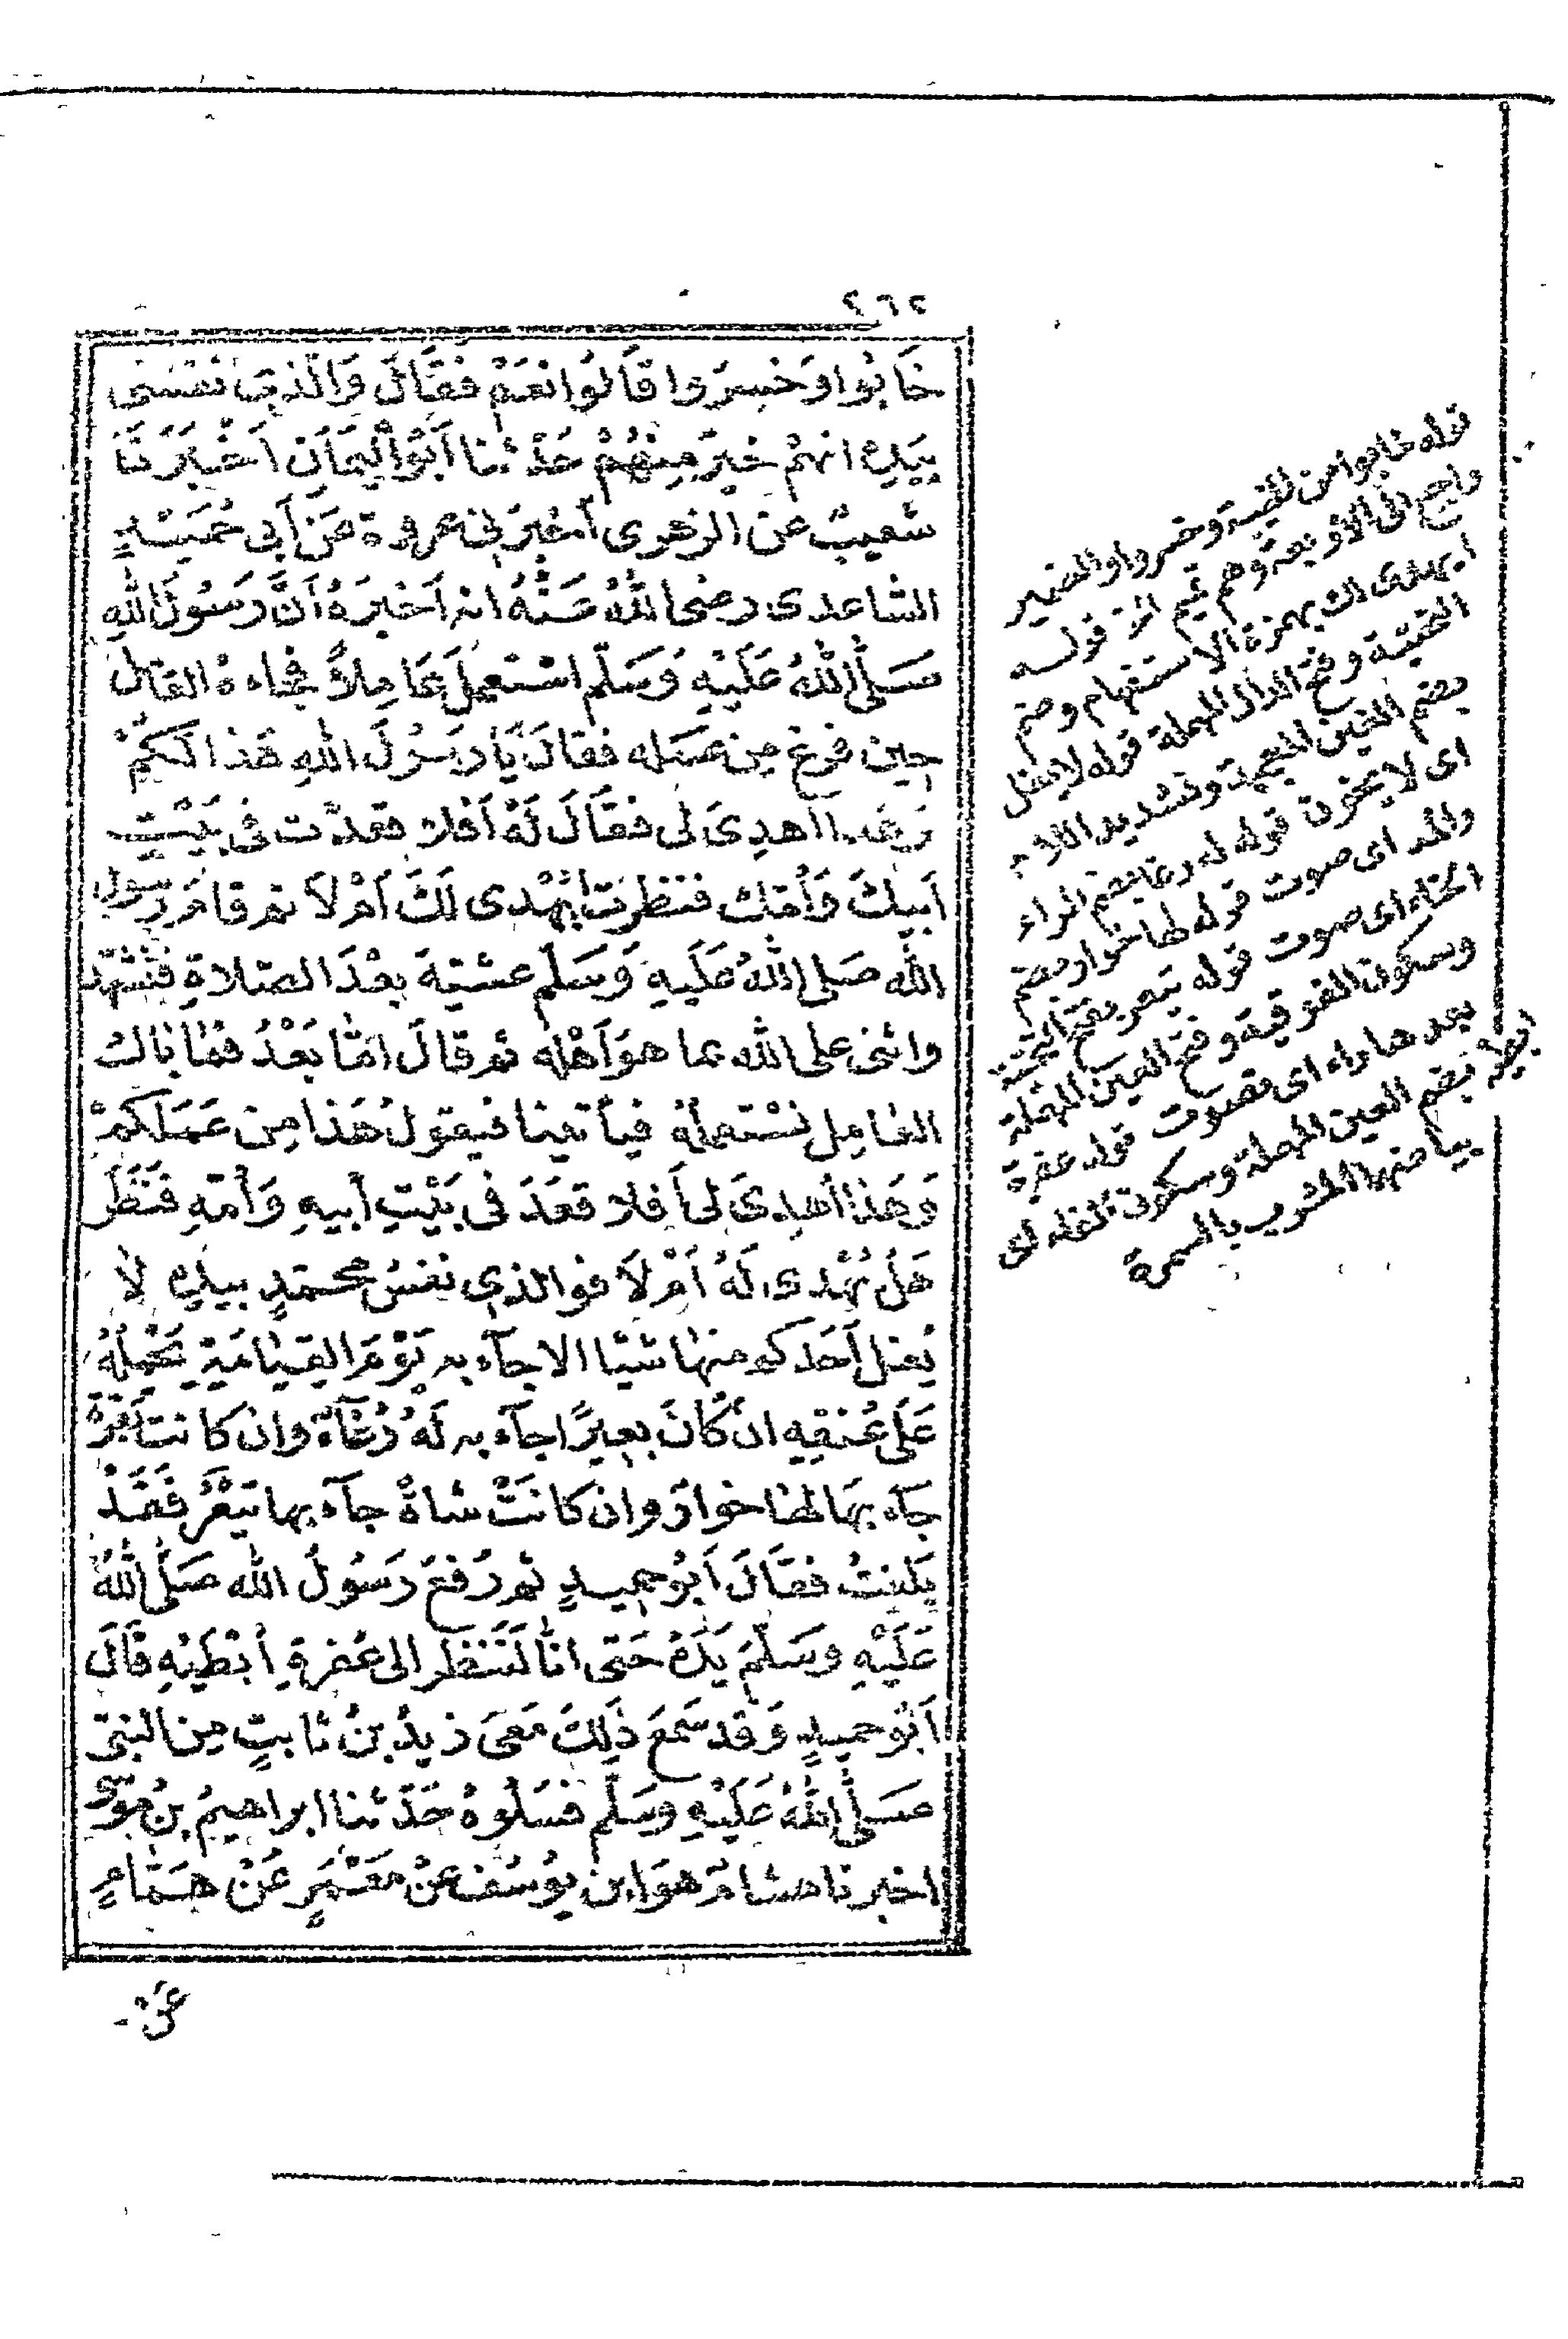 ٤٦٢
خَابُوا وَخَسِرُوا قَالُوا نَعَمْ فَقَالَ وَالَّذِي نَفْسِي
بِيَدِهِ انهُمْ خَيرٌ مِنْهُمْ حَدّثنا أَبُو الْيَمَانِ أَخْبَرَنَا
شعيبٌ عن الزهرى أَخْبَرَنِى عروة عَن أَبِى حُمَيْدٍ
الساعدى رضى اللهُ عَنْهُ انه اَخْبَرَهُ أَنَّ رَسُولَ اللهِ
صَلَّى اللهُ عَلَيْهِ وَسَلَّم اسْتَعمل عَامِلاً فجاءهُ العَامل
حِين فرغ مِن عَمَله فقالَ يَا رَسُولَ اللهِ هَذا لَكُمْ
وَهَذا اهدِىَ لى فقَالَ لَهُ أفلا قعَدْت فى بَيْتِ
اَبِيكَ وَأُمِّك فنَظرتَ أيُهْدى لَكَ اَمْ لاَ ثم قامَ رَسول
الله صَلى اللهُ عَلَيهِ وَسَلم عشيّة بعْدَ الصّلاةِ فتَشَهّد
واثنى على الله بما هوَ أَهْلهُ ثم قالَ امّا بَعْدُ فمَا بَالُ
العَامِلِ نسْتعملهُ فيأتينا فيقولُ هَذا مِن عَمَلِكُمْ
وَهَذا أُهدِىَ لى أَفلا قعَدَ فى بَيْتِ أَبيهِ وَأُمّهِ فنَظَر
هَلْ يُهْدى لَهُ اَمْ لاَ فوالذى نفسُ محمّدٍ بيدِهِ لاَ
يَغل أَحَدكم منهَا شيئا الا جآء به يَوْمَ القِيَامَةِ يَحْمِلُهُ
عَلَى عُنقِهِ ان كَانَ بعِيرًا جآء به لَهُ رُغآءٌ وان كانت بَقَرَةً
جآء بِهَا لهَا خوارٌ وان كانَتْ شاةً جآء بها تَيْعَرُ فَقَدْ
بَلغتُ فقَالَ أَبُو حميدٍ ثم رَفعَ رَسُولُ الله صَلَّى اللهُ
عَلَيْهِ وسَلّمَ يَدَهُ حَتى انّا لَنَنْظر الى عُفرةِ أبْطَيْهِ قَالَ
اَبُو حميدٍ وَقد سَمعَ ذَلِكَ مَعِىَ زيدُ بنُ ثَابتٍ مِن النبىّ
صَلَّى اللهُ عَلَيْهِ وسَلَّم فسَلُوهُ حَدّثنا ابراهيمُ بنُ مُوسَى
اخبرنا هشامٌ هوَ ابن يُوسُف عنْ مَعْمَرٍ عَنْ هَمّامٍ
عَنْ
قوله خابوا من الخيبة وخسروا والضمير
راجع الى الاربعة وهم تميم الخ قوله
ايهدى لك بهمزة الاستفهام وضم
التحتية وفتح الدال المهملة قوله لا يغل
بضم الغين المعجمة وتشديد اللام
اى لا يخون قوله له رغا بضم الراء
والمد اى صوت قوله لها خوار بضم
الخاء اى صوت قوله تيعر بفتح التحتية
وسكون الفوقية وفتح العين المهملة
بعدها راء اى تصوت قوله عفرة
ابطيه بضم العين المهملة وسكون الفاء اى
بياضها المشوب بالسمرة